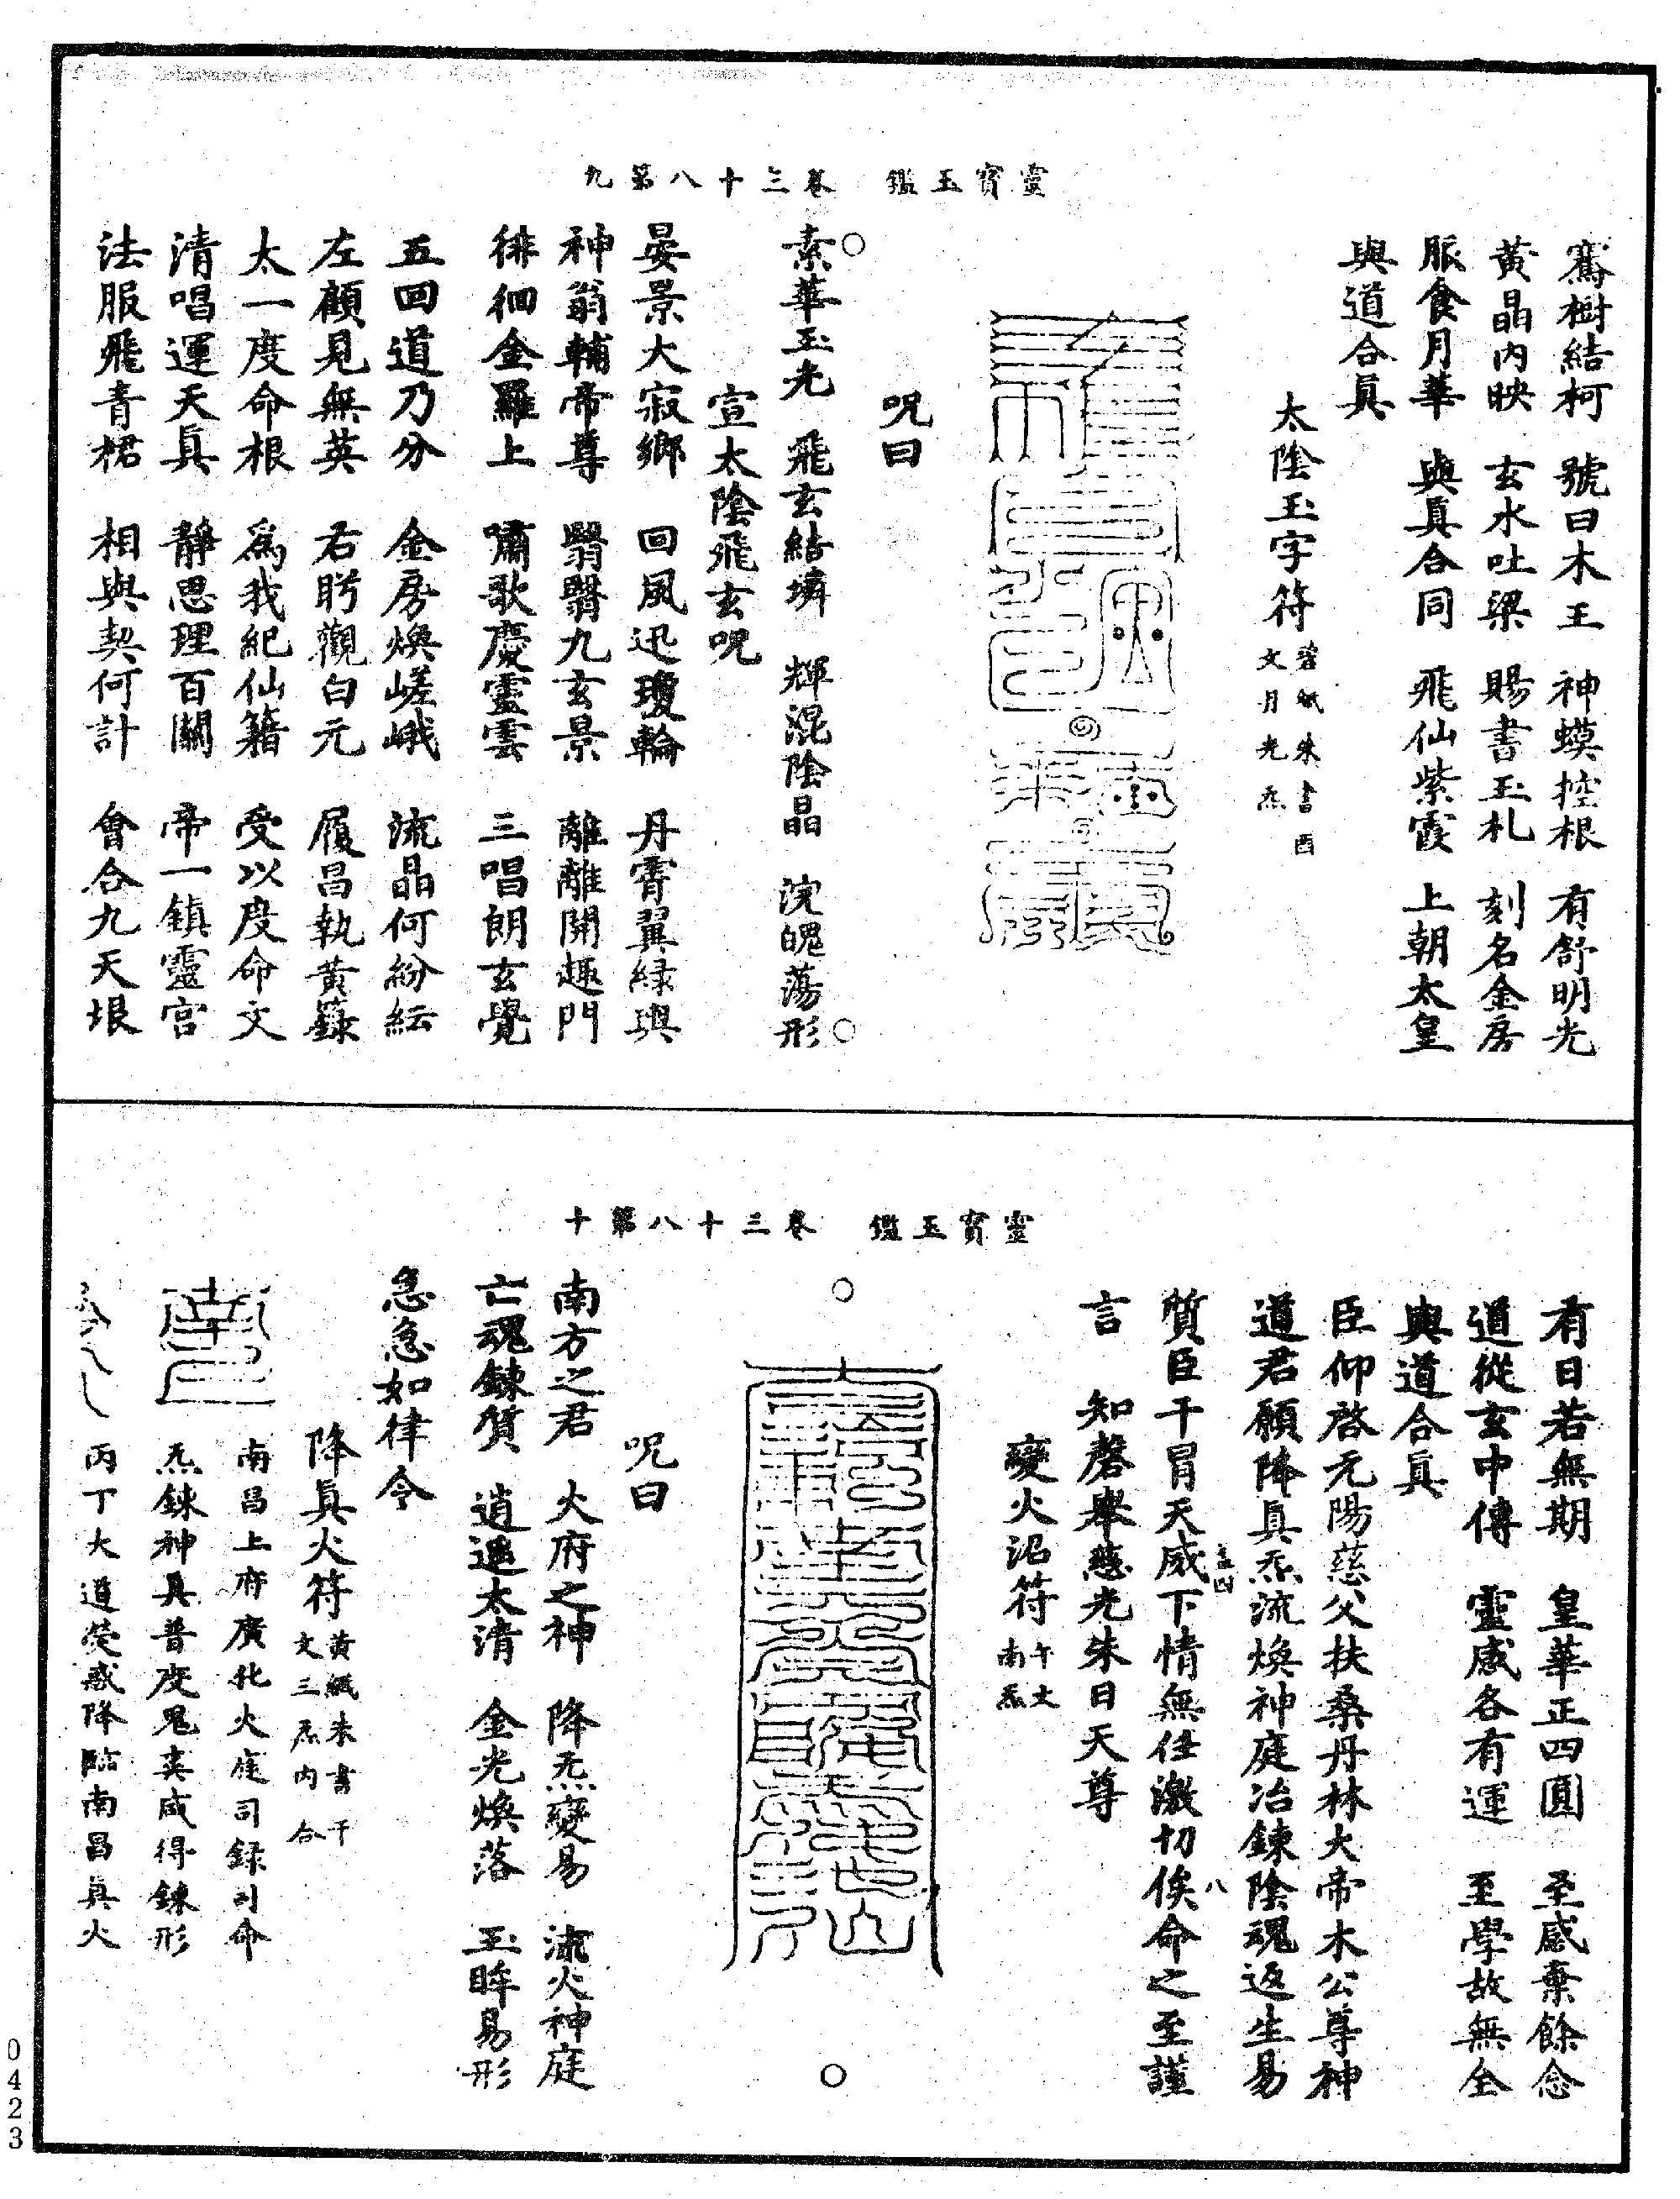 靈寶玉鑑　卷三十八第九
騫樹結柯　號曰木王　神蟆控根　有舒明光
黃晶內映　玄水吐梁　賜書玉札　刻名金房
服食月華　與眞合同　飛仙紫霞　上朝太皇
與道合眞
太陰玉字符
碧紙朱書酉
文月光炁
呪曰
素華玉光　飛玄結璘　輝混陰晶　浣魄蕩形
宣太陰飛玄呪
晏景大寂鄉　回風迅瓊輪　丹霄翼綠輿
神翁輔帝尊　翳翳九玄景　離離開趣門
徘徊金羅上　嘯歌慶靈雲　三唱朗玄覺
五回道乃分　金房煥嵯峨　流晶何紛紜
左顧見無英　右盻觀白元　履昌執黃籙
太一度命根　爲我紀仙籍　受以度命文
清唱運天眞　靜思理百關　帝一鎮靈宮
法服飛青裙　相與契何計　會合九天垠
靈寶玉鑑　卷三十八第十
有日若無期　皇華正四圓　圣感棄餘念
道從玄中傳　靈感各有運　至學故無全
與道合眞
臣仰啓元陽慈父扶桑丹林大帝木公尊神
道君願降眞炁流煥神庭冶鍊陰魂返生易
質臣干冐天威下情無任激切俟命之至謹
言　知磬舉慈光朱日天尊
變火沼符
午文
南炁
呪曰
南方之君　火府之神　降炁變易　流火神庭
亡魂鍊質　逍遙太清　金光煥落　玉眸易形
急急如律令
降眞火符
黃紙朱書干
文三炁內合
南昌上府廣化火庭司錄司命
炁鍊神具普度鬼爽咸得鍊形
丙丁大道熒惑降臨南昌眞火
0423